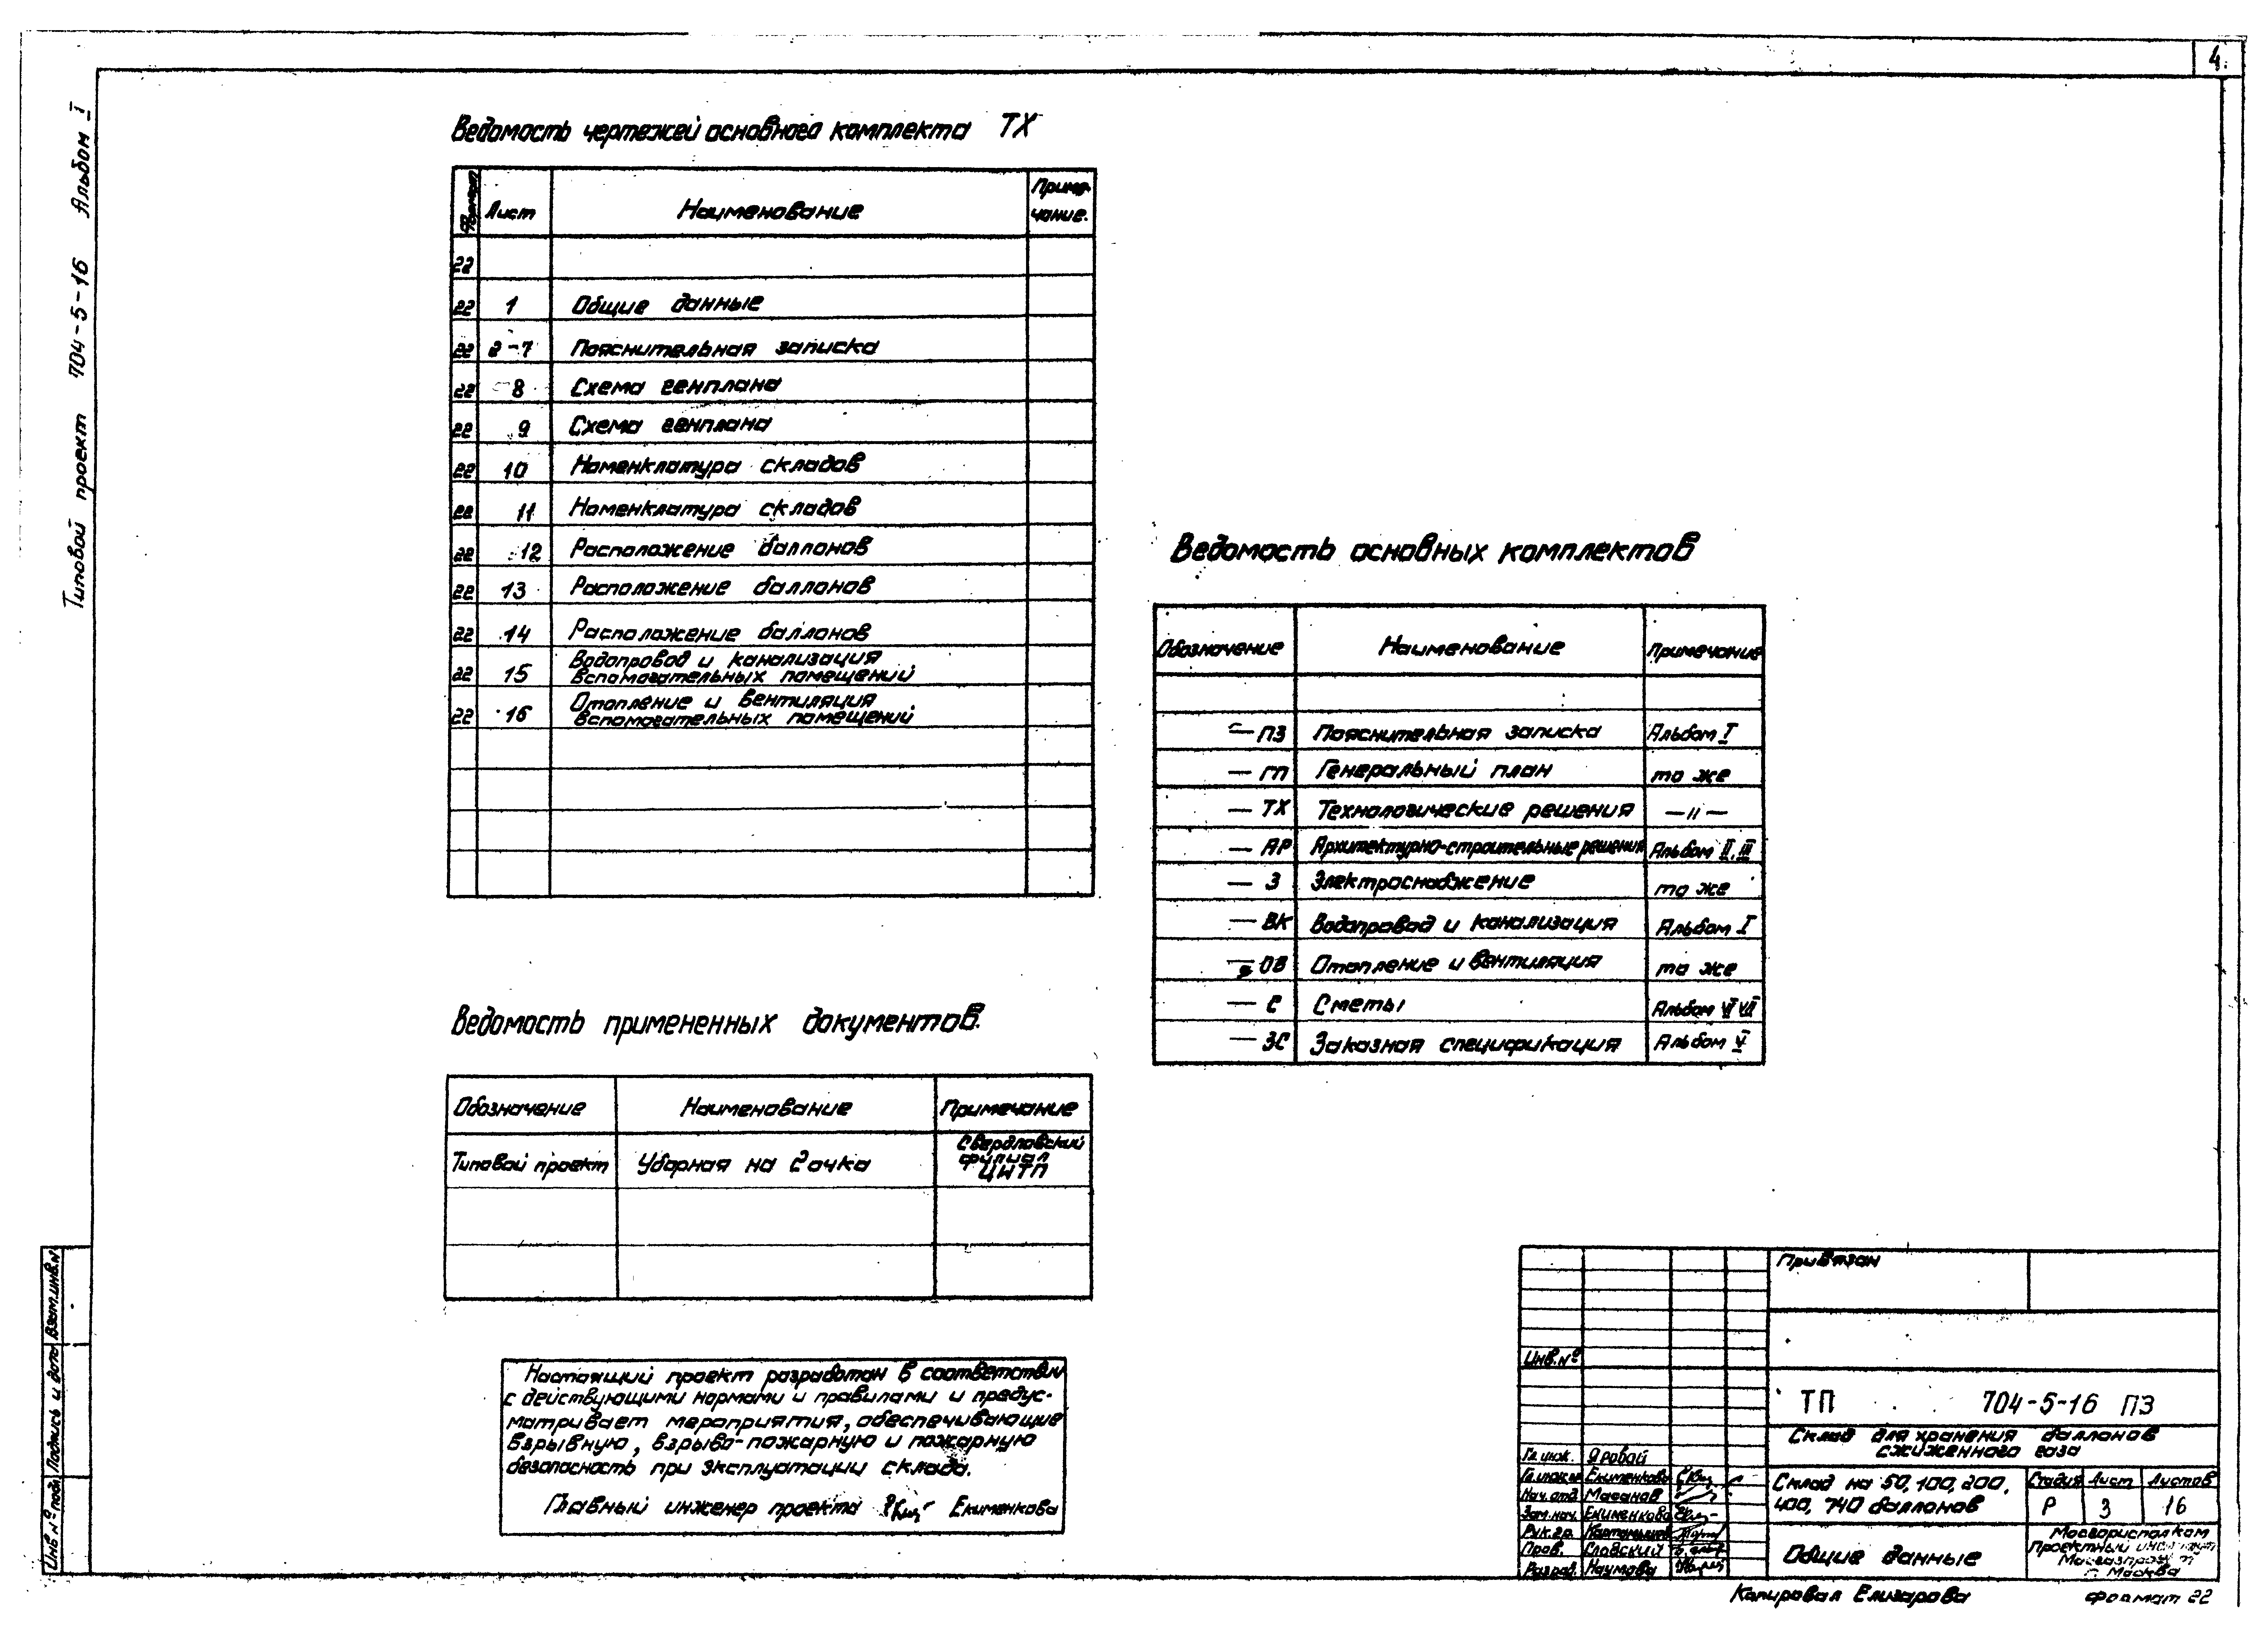 4
Типовой проект 704-5-16 Альбом I
Ведомость чертежей основного комплекта ТХ
Формат Лист Наименование Приме-
чание.
22
22 1 Общие данные
22 2-7 Пояснительная записка
22 8 Схема генплана
22 9 Схема генплана
22 10 Номенклатура складов
22 11 Номенклатура складов
22 12 Расположение баллонов
22 13 Расположение баллонов
22 14 Расположение баллонов
22 15 Водопровод и канализация
вспомогательных помещений
22 16 Отопление и вентиляция
вспомогательных помещений
Ведомость основных комплектов
Обозначение Наименование Примечание
— ПЗ Пояснительная записка Альбом I
— ГП Генеральный план то же
— ТХ Технологические решения — 〃 —
— АР Архитектурно-строительные решения Альбом II, III
— Э Электроснабжение то же
— ВК Водопровод и канализация Альбом I
— ОВ Отопление и вентиляция то же
— С Сметы Альбом VI VII
— ЗС Заказная спецификация Альбом V
Ведомость примененных документов.
Обозначение Наименование Примечание
Типовой проект Уборная на 2 очка Свердловский
филиал
ЦИТП
Настоящий проект разработан в соответствии
с действующими нормами и правилами и предус-
матривает мероприятия, обеспечивающие
взрывную, взрыво-пожарную и пожарную
безопасность при эксплуатации склада.
Главный инженер проекта Екименкова
Инв № подл Подпись и дата Взам.инв.№
Привязан
Инв.№
ТП 704-5-16 ПЗ
Склад для хранения баллонов
сжиженного газа
Гл.инж. Яровой
Екименкова
Нач.отд. Масанов
Зам.нач. Екименкова
Рук.гр.
Пров. Сладский
Разраб. Наумова
Склад на 50, 100, 200,
400, 740 баллонов
Стадия Лист Листов
Р 3 16
Общие данные
Мосгорисполком
Проектный институт
Мосгазпроект
г. Москва
Копировал Елизарова
Формат 22